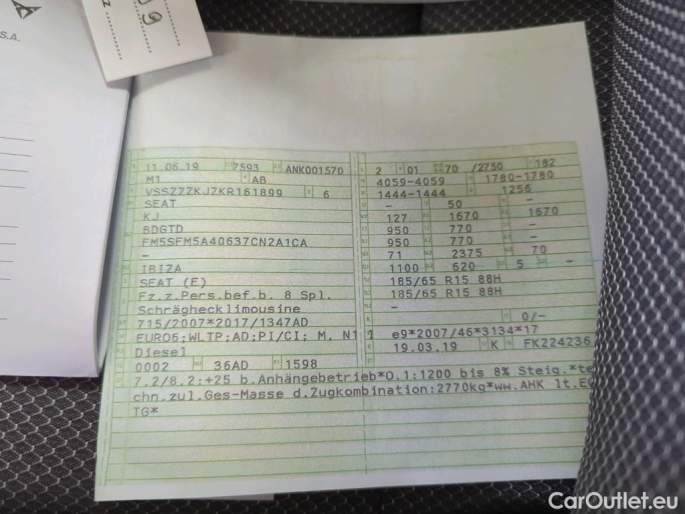 S.A.
11.06.19 7593 ANK001570
M1 AB
VSSZZZKJZKR161899 6
SEAT
KJ
BDGTD
FM5SFM5A40637CN2A1CA
-
IBIZA
SEAT (E)
Fz.z.Pers.bef.b. 8 Spl.
Schräghecklimousine
715/2007*2017/1347AD
EURO6;WLTP;AD;PI/CI; M, N1 I
Diesel
0002 36AD 1598
2 01 70 /2750 182
4059-4059 1780-1780
1444-1444 1256
- 50 -
127 1670 1670
950 770 -
950 770 -
71 2375 70
1100 620 5 -
185/65 R15 88H
185/65 R15 88H
-
0/-
e9*2007/46*3134*17
19.03.19 K FK224236
7.2/8.2:+25 b.Anhängebetrieb*O.1:1200 bis 8% Steig.*te
chn.zul.Ges-Masse d.Zugkombination:2770kg*ww.AHK lt.EG
TG*
CarOutlet.eu